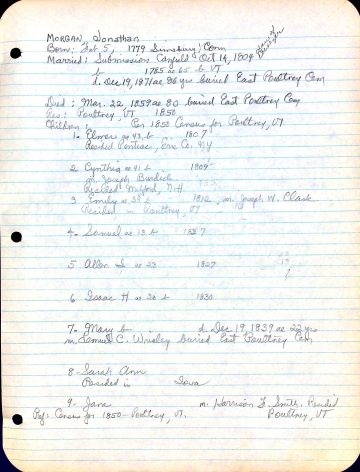 MORGAN, Jonathan
Born: Feb 5, 1779 Simsbury, Conn
Married: Submission Canfield Oct 14, 1804
b 1785 ae 65 b VT
d. Dec 19, 1871 ae 86 yrs buried East Poultney Cem
Died: Mar. 22, 1859 ae 80 buried East Poultney Cem
Res: Poultney, VT 1850
Children: Per 1850 Census for Poultney, VT
1. Elmer ae 43, b 1807
Resided Pontiac, Erie Co. NY
2 Cynthia ae 41 b 1809
m. Joseph Burdick
Resided Milford, NH
3 Emily ae 38 b 1812, m. Joseph W. Clark
Resided in Poultney, VT
4. Samuel ae 13 b 1837
5 Allen S ae 23 1827
6 Isaac H ae 20 b 1830
7. Mary b d. Dec 19, 1839 ae 22 yrs
m. Samuel C. Wrisley buried East Poultney Cem
8 - Sarah Ann
Resided in Iowa
9 - Jane m. Harrison F. Smith. Resided
Poultney, VT
Ref: Census for 1850 - Poultney, VT.